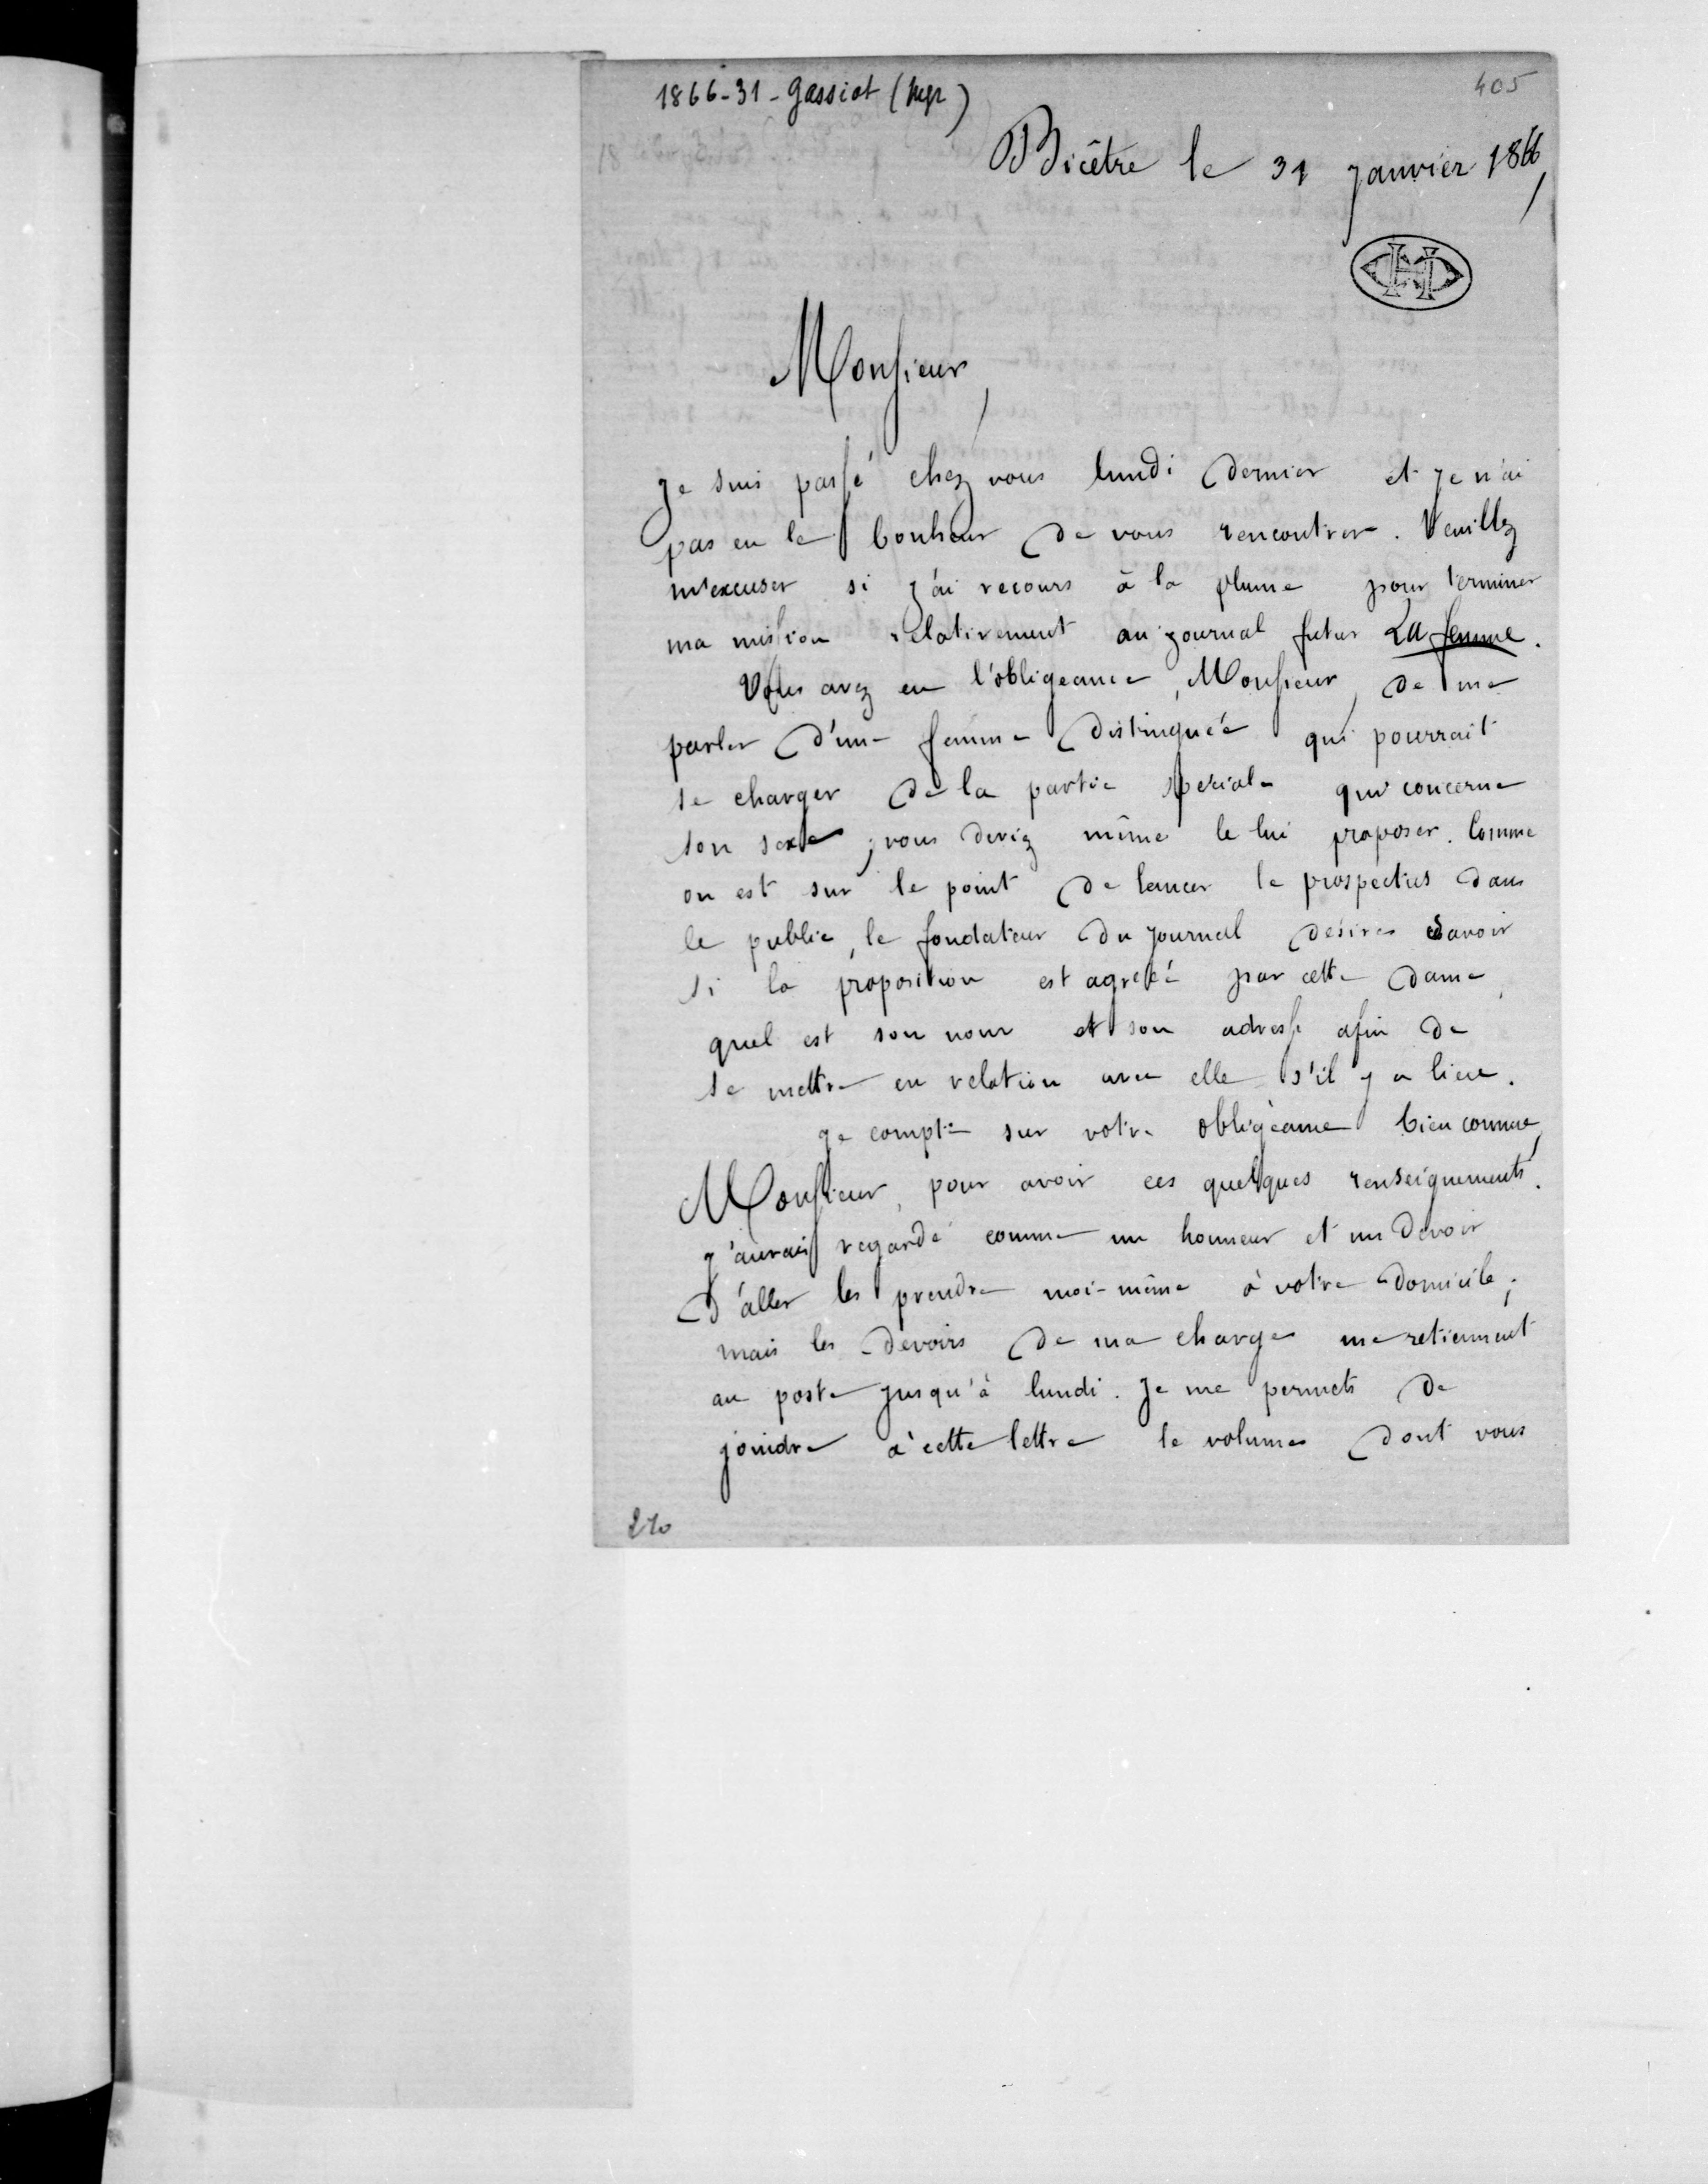 1866-31-Gassiot (Mgr)
405
Bicêtre le 31 janvier 1866,
Monsieur,
Je suis passé chez vous lundi dernier et je n'ai
pas eu le bonheur de vous rencontrer. Veuillez
m'excuser si j'ai recours à la plume pour terminer
ma mission relativement au journal futur La femme.
Vous avez eu l'obligeance, Monsieur, de me
parler d'une femme distinguée qui pourrait
se charger de la partie spéciale qui concerne
son sexe ; vous deviez même le lui proposer. Comme
on est sur le point de lancer le prospectus dans
le public, le fondateur du journal désire savoir
si la proposition est agréée par cette dame,
quel est son nom et son adresse afin de
se mettre en relation avec elle s'il y a lieu.
Je compte sur votre obligeance bien connue,
Monsieur, pour avoir ces quelques renseignements.
J'aurais regardé comme un honneur et un devoir
d'aller les prendre moi-même à votre domicile ;
mais les devoirs de ma charge me retiennent
au poste jusqu'à lundi. Je me permets de
joindre à cette lettre le volume dont vous
270